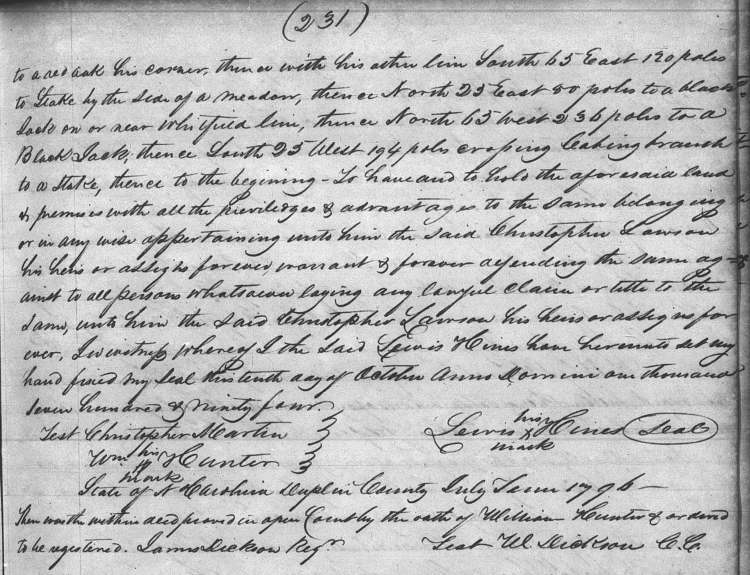 (231)
to a red oak his corner, thence with his other line South 65 East 120 poles
to Stake by the side of a meadow, thence North 25 East 80 poles to a black
Jack on or near Whitfield line, thence North 65 West 236 poles to a
Black Jack, thence South 25 West 194 poles croping branch
to a Stake, thence to the begining - To have and to hold the aforesaid land
& premises with all the Priviledges & advantages to the same belonging
or in any wise appertaining unto him the said Christopher Lawson
his heirs or assigns forever warrant & forever defending the same ag-
ainst to all persons whatsoever laying any lawful claim or title to the
same, unto him the said Christopher Lawson his heirs or assigns for
ever. In witness whereof I the said Lewis Hines have hereunto set my
hand fixed my seal this tenth day of October Anno Domini one thousand
seven hundred & ninety four.
Test Christopher Martin
Lewis his X mark Hines Seal
Wm his mark Hunter
State of N Carolina Duplin County July Term 1796 -
Then was the within deed proved in open Court by the oath of William Hunter & ordered
to be registered. James Dickson Regr. Test W. Dickson C.C.